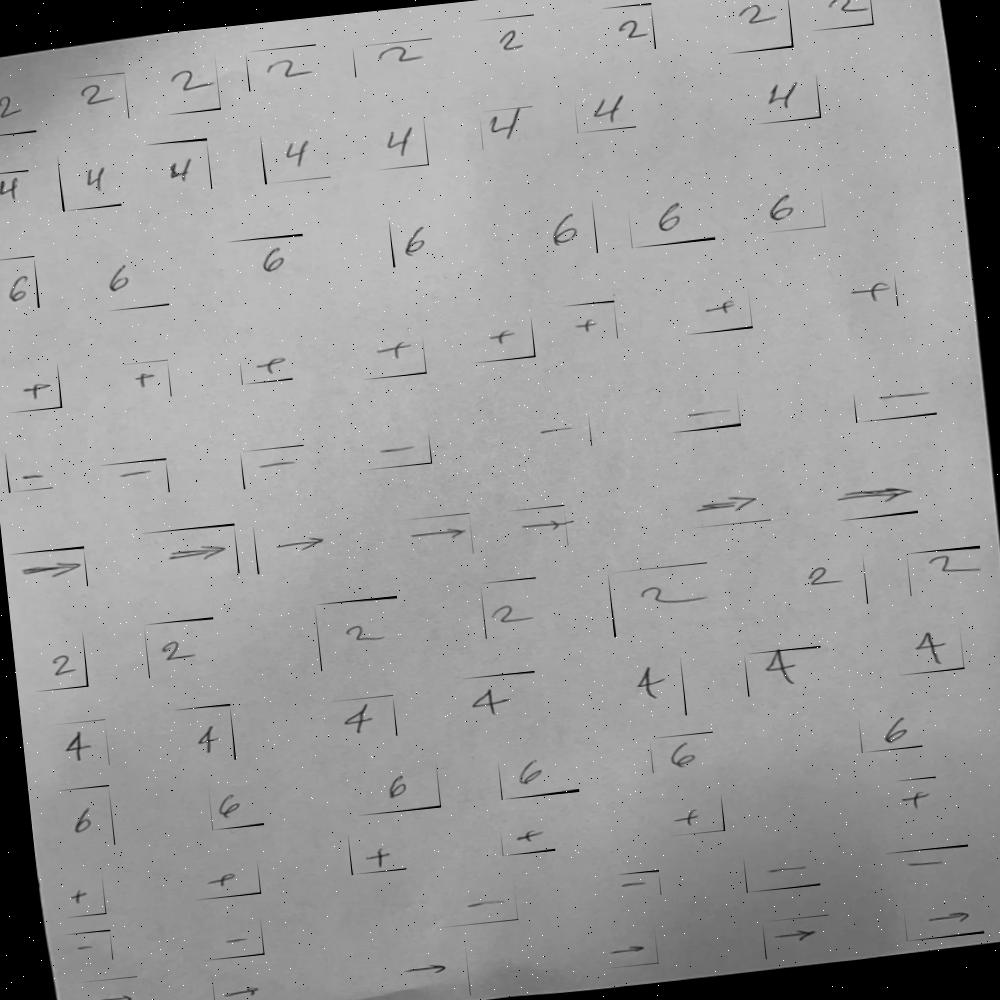 2 2 2 2 2 2 2 2 2
4 4 4 4 4 4 4 4
6 6 6 6 6 6 6
+ + + + + + + +
- - - - - - -
→ → → → → → →
2 2 2 2 2 2 2
4 4 4 4 4 4 4
6 6 6 6 6 6
+ + + + + +
- - - - - -
→ → → → → →